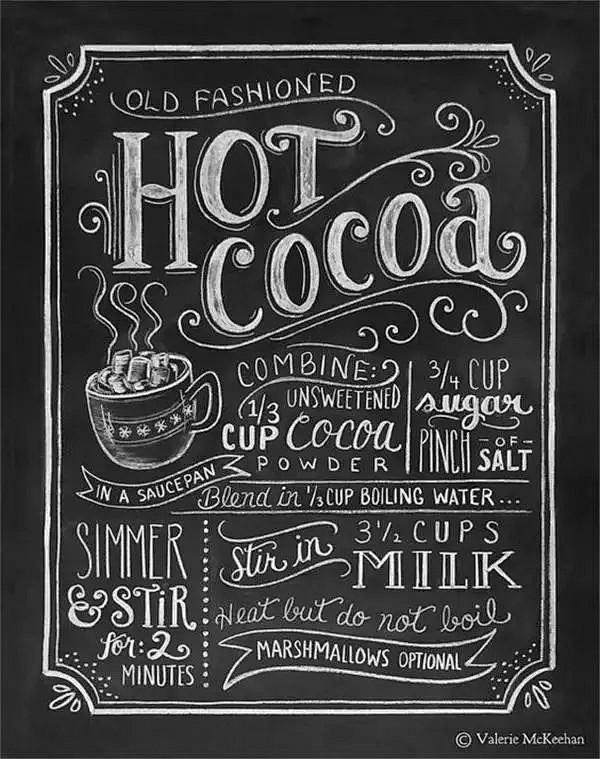 OLD FASHIONED
HOT
COCOA
COMBINE:
1/3 UNSWEETENED
CUP COCOA
POWDER
3/4 CUP
sugar
PINCH -OF- SALT
IN A SAUCEPAN
Blend in 1/3 CUP BOILING WATER...
SIMMER
& STIR
for: 2
MINUTES
Stir in 3 1/2 CUPS
MILK
Heat but do not boil
MARSHMALLOWS OPTIONAL
© Valerie McKeehan